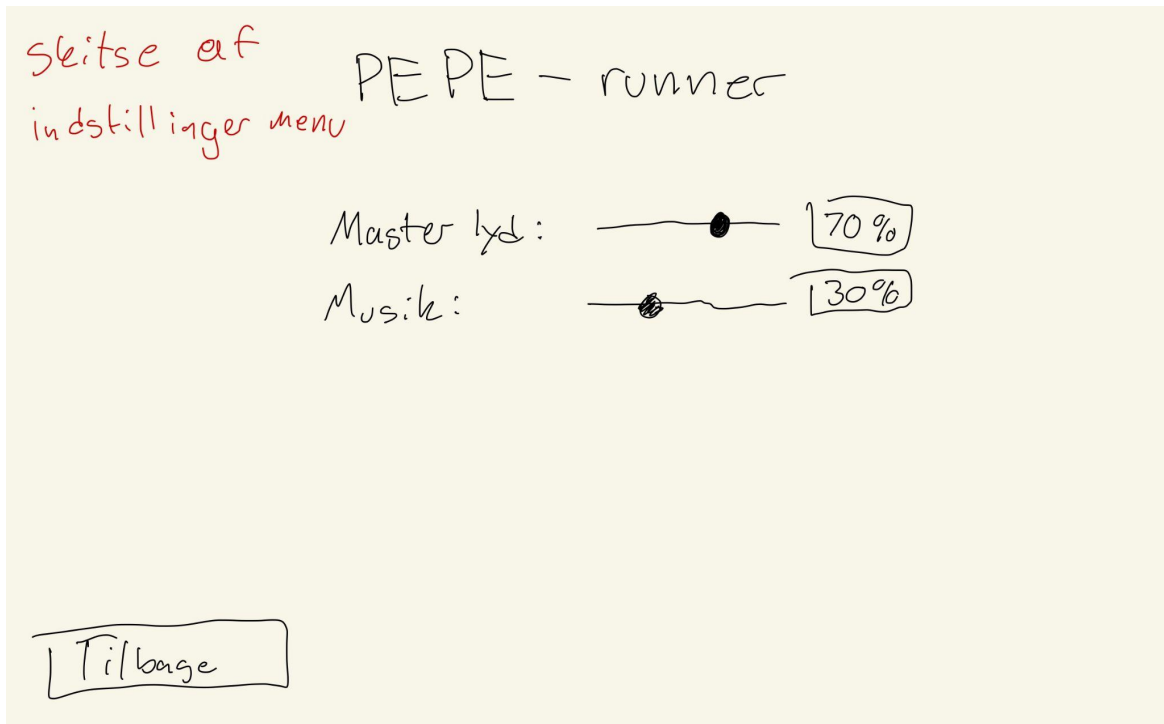 Skitse af
indstillinger menu
PEPE - runner
Master lyd: 70%
Musik: 30%
Tilbage